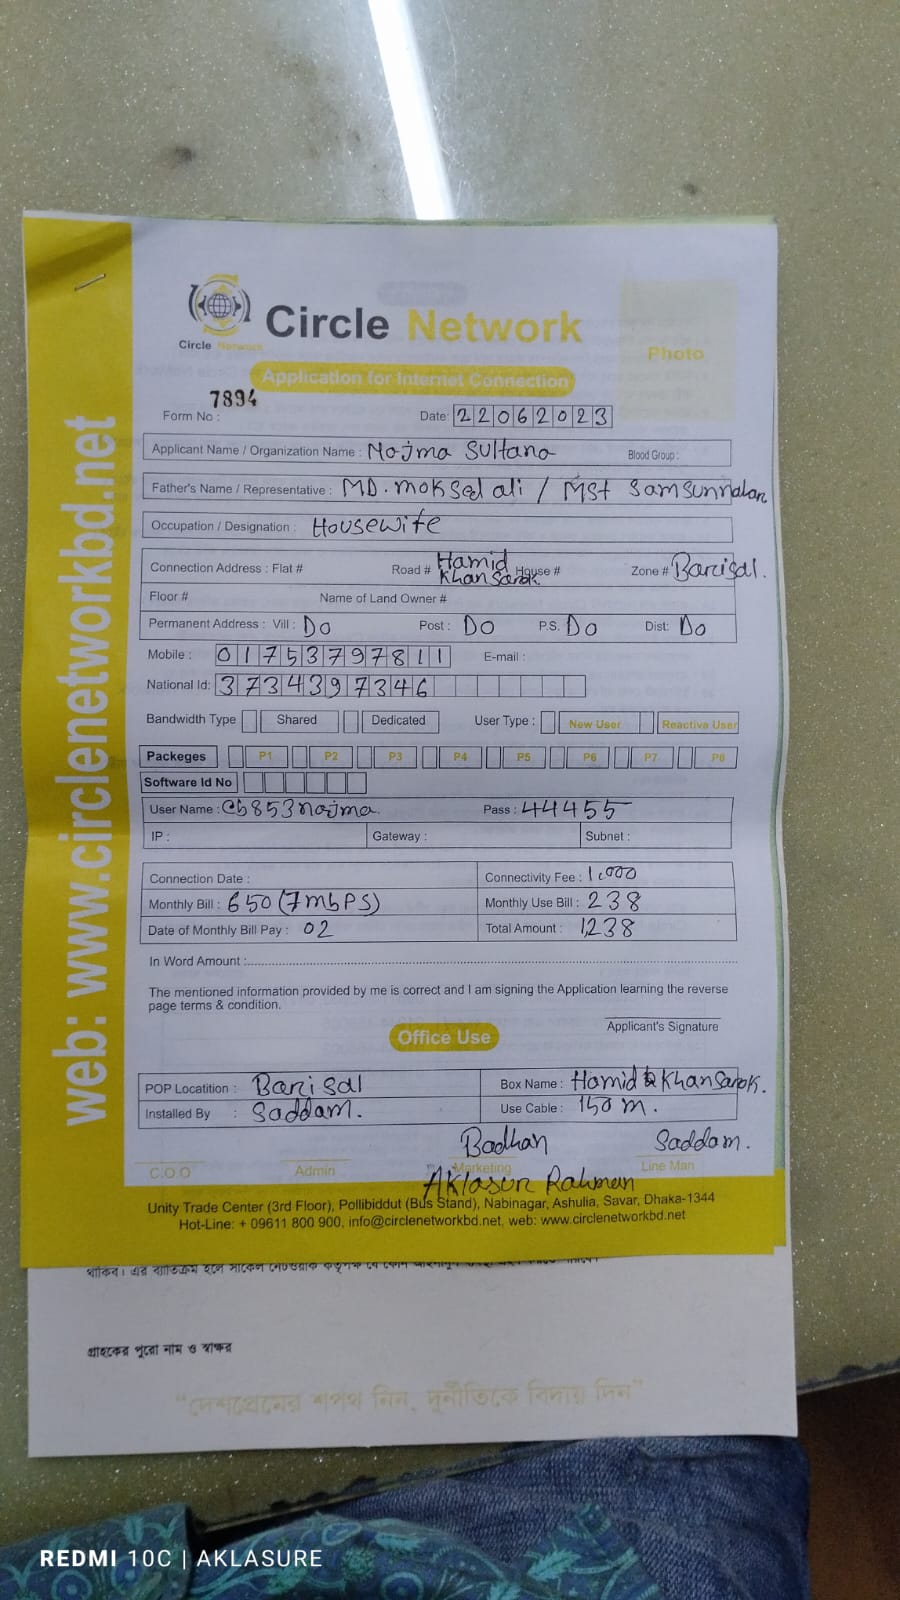 Circle Network
Circle Network
Photo
Application for Internet Connection
Form No : 7894
Date: 22062023
Applicant Name / Organization Name : Nojma Sultana Blood Group :
Father's Name / Representative : MD. moksed ali / Mst Samsunnahan
Occupation / Designation : Housewife
Connection Address : Flat # Road # Hamid Khan Sarok. House # Zone # Barisal.
Floor # Name of Land Owner #
Permanent Address : Vill : Do Post : Do P.S. Do Dist: Do
Mobile : 01753797811 E-mail :
National Id: 3734397346
Bandwidth Type Shared Dedicated User Type : New User Reactive User
Packeges P1 P2 P3 P4 P5 P6 P7 P8
Software Id No
User Name : cb853najma. Pass : 44455
IP : Gateway : Subnet :
Connection Date : Connectivity Fee : 1,000
Monthly Bill : 650 (7mbPS) Monthly Use Bill : 238
Date of Monthly Bill Pay : 02 Total Amount : 1,238
In Word Amount :
The mentioned information provided by me is correct and I am signing the Application learning the reverse
page terms & condition.
Applicant's Signature
Office Use
POP Locatition : Barisal Box Name : Hamid Khan Sarok.
Installed By : Saddam. Use Cable : 150 m.
Badhan Saddam.
C.O.O Admin Marketing Line Man
Aklasur Rahman
Unity Trade Center (3rd Floor), Pollibiddut (Bus Stand), Nabinagar, Ashulia, Savar, Dhaka-1344
Hot-Line: + 09611 800 900, info@circlenetworkbd.net, web: www.circlenetworkbd.net
web: www.circlenetworkbd.net
গ্রাহকের পুরো নাম ও স্বাক্ষর
“দেশপ্রেমের শপথ নিন, দুর্নীতিকে বিদায় দিন”
REDMI 10C | AKLASURE